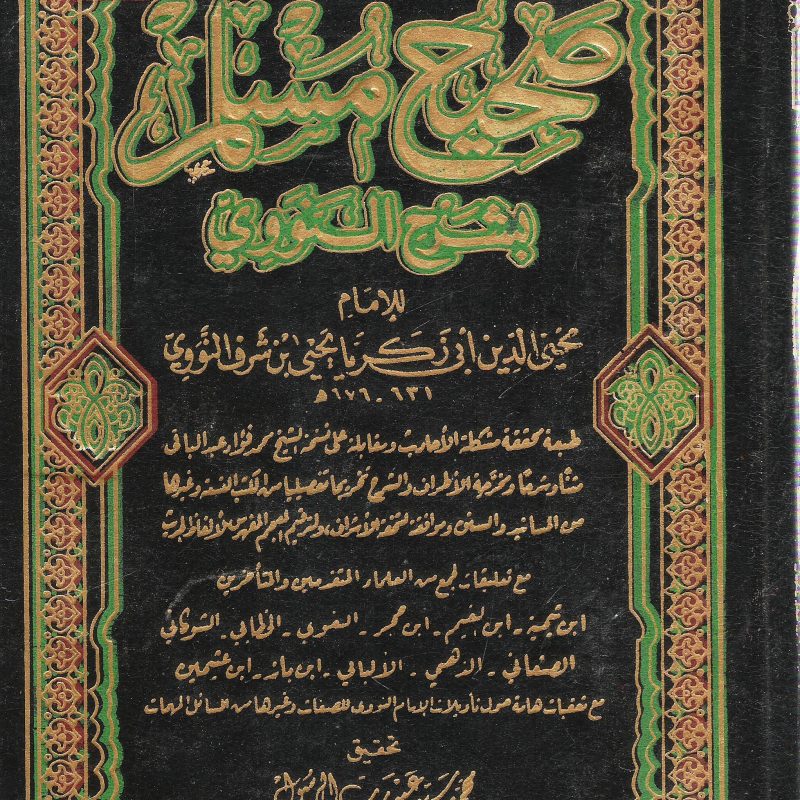 صحيح مسلم
بشرح النووي
للإمام
محيي الدين أبي زكريا يحيى بن شرف النووي
٦٣١ - ٦٧٦ هـ
طبعة محققة مشكلة الأحاديث ومقابلة على نسخة الشيخ محمد فؤاد عبد الباقي
متنًا وشرحًا ومخرجة الأطراف والشرح تخريجا تفصيليا من الكتب الستة وغيرها
من المسانيد والسنن وموافقة لتحفة الأشراف، ولترقيم المعجم المفهرس لألفاظ الحديث
مع تعليقات لجمع من العلماء المتقدمين والمتأخرين
ابن تيمية - ابن القيم - ابن حجر - البغوي - الخطابي - الشوكاني
الصنعاني - الذهبي - الألباني - ابن باز - ابن عثيمين
مع تعقبات هامة حول تأويلات الإمام النووي للصفات وغيرها من المسائل المهمات
تحقيق